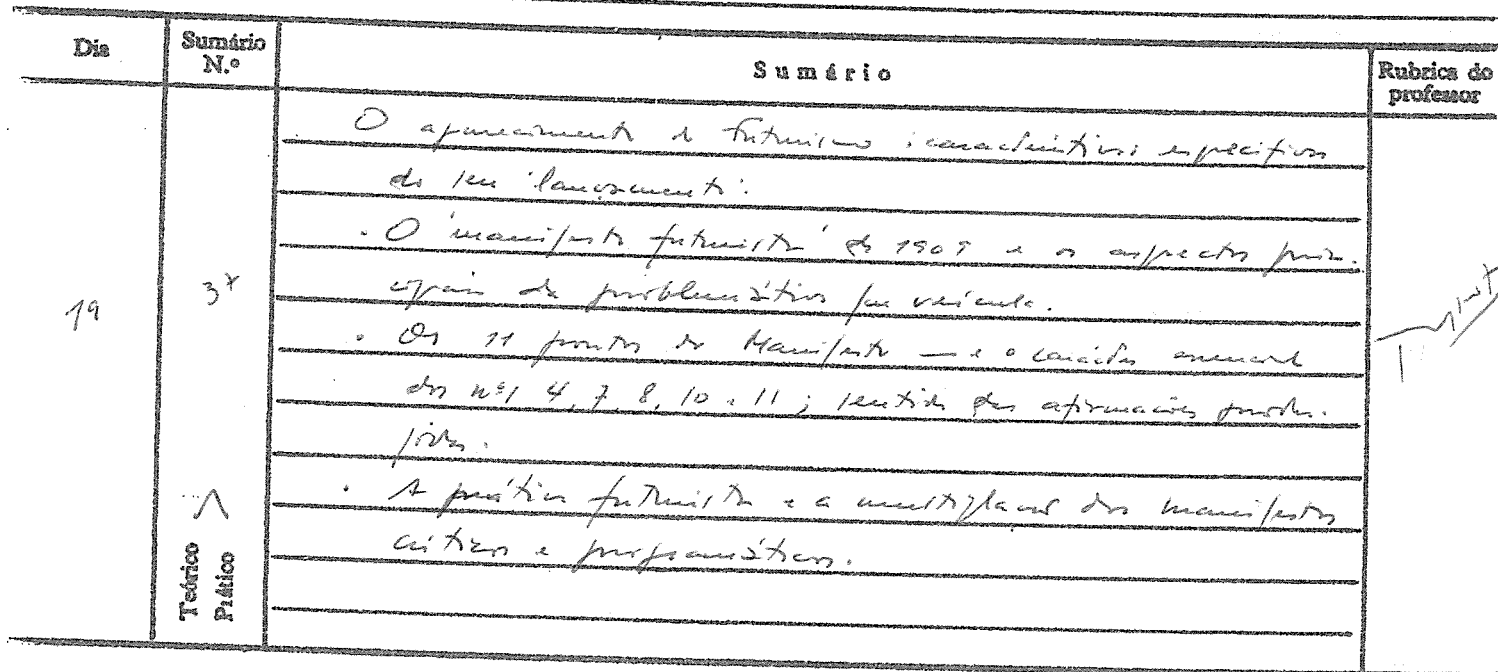 Dia
Sumário N.º
Sumário
Rubrica do professor
19
3
O aparecimento do Futurismo: características específicas
do seu 'lançamento'.
. O 'manifesto futurista' de 1909 e os aspectos prin-
cipais da problemática que veicula.
. Os 11 pontos do Manifesto — e o carácter essencial
dos nºs 4, 7, 8, 10 e 11; sentido das afirmações
. A prática futurista e a dos manifestos
críticos e programáticos.
Teórico
Prático